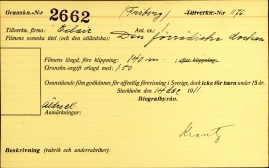 Granskn.-Nr 2662 (Friberg) Tillverkn.-Nr 176
Tillverkn. firma: Eclair Ant. ex.
Filmens svenska titel (och den utländska): Den förrädiska lockan
Filmens längd, före klippning: 149 m. efter klippning:
Granskn.-avgift erlagd med: 1:50
Ovanstående film godkännes för offentlig förevisning i Sverige, dock icke för barn under 15 år.
Stockholm den 14 dec 1911.
Biografbyrån.
Anmärkningar:
Krantz
Beskrivning: (rubrik och underrubriker):